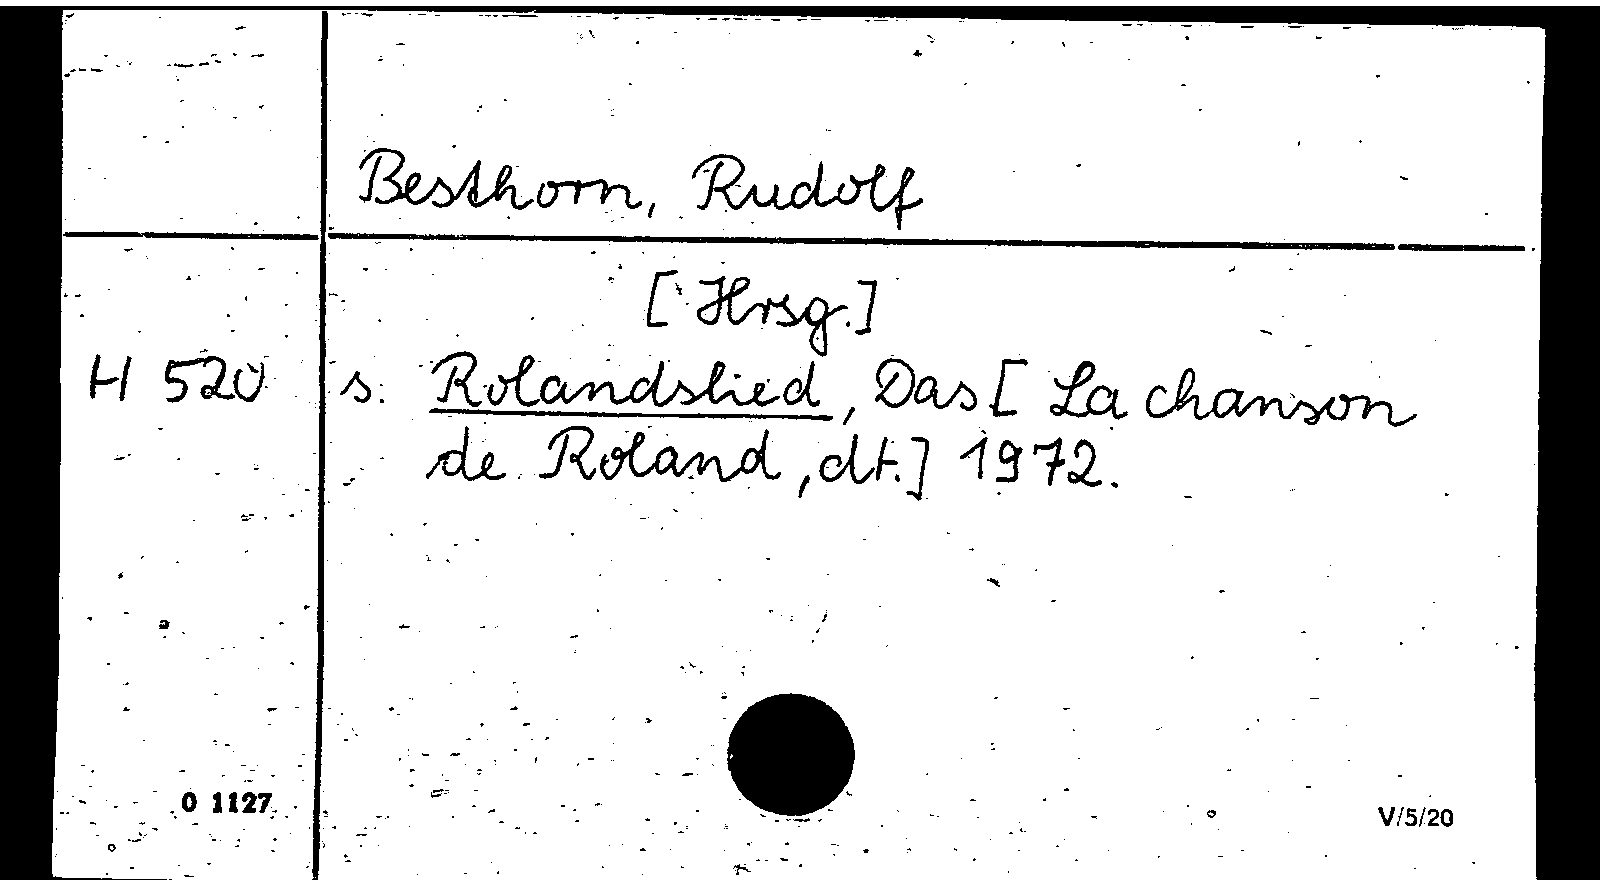 Besthorn, Rudolf
[Hrsg.]
H 520 s. Rolandslied, Das [La chanson
de Roland, dt.] 1972.
0 1127
V/5/20